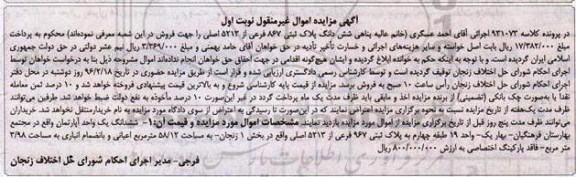 آگهی مزایده اموال غیرمنقول نوبت اول
در پرونده کلاسه ۹۳۱۰۷۳ اجرائی آقای احمد عسگری (خانم عالیه پناهی شش دانگ پلاک ثبتی ۸۶۷ فرعی از ۵۲۱۳ اصلی را جهت فروش در این شعبه معرفی نموده‌اند) محکوم به پرداخت
مبلغ ۱۷/۳۸۲/۰۰۰ ریال بابت اصل خواسته و سایر هزینه‌های اجرائی و خسارت تأخیر تأدیه در حق خواهان آقای حامد بهمنی و مبلغ ۳/۳۶۹/۰۰۰ ریال نیم عشر دولتی در حق دولت جمهوری
اسلامی ایران گردیده است. و با توجه به اینکه حکم به خوانده ابلاغ گردیده و ایشان هیچ‌گونه اقدامی در جهت احقاق حق خواهان انجام نداده‌اند اموال مشروحه ذیل بنا به درخواست خواهان توسط
اجرای احکام شورای حل اختلاف زنجان توقیف گردیده است و توسط کارشناس رسمی دادگستری ارزیابی شده و قرار است از طریق مزایده حضوری در تاریخ ۹۶/۲/۱۸ روز دوشنبه در محل دفتر
اجرای احکام شورای حل اختلاف زنجان رأس ساعت ۱۰ صبح به فروش برسد. مزایده از قیمت پایه کارشناسی شروع و به بالاترین قیمت پیشنهادی فروخته خواهد شد و ۱۰ درصد ثمن معامله
نقدا یا به‌صورت چک بانکی (تضمینی) از برنده مزایده اخذ و مابقی باید ظرف مدت یک ماه پرداخت گردد در غیر این‌صورت ۱۰ درصد مأخوذه به نفع دولت ضبط خواهد شد. طرفین می‌توانند
ظرف مدت یک‌هفته از تاریخ مزایده نسبت به نحوه برگزاری مزایده اعتراض نمایند که در این‌صورت تا رسیدگی به اعتراض از سوی دادگاه مورد مزایده به نام خریدار منتقل نخواهد شد. خریداران
می‌توانند ظرف مدت پنج روز قبل از تاریخ برگزاری مزایده از اموال مورد مزایده بازدید نمایند. مشخصات اموال مورد مزایده و قیمت آن: ۱- ششدانگ یک واحد آپارتمان واقع در مجتمع
بهارستان فرهنگیان- بهار یک- واحد ۱۹ طبقه چهارم به پلاک ثبتی ۹۶۷ فرعی از ۵۲۱۳ اصلی واقع در بخش ۱ زنجان- به مساحت ۵۸/۱۲ مترمربع اعیانی و بانضمام انباری به مساحت ۳/۹۸
متر مربع- فاقد پارکینگ اختصاصی به ارزش ۸۰۰/۰۰۰/۰۰۰ ریال.
فرجی- مدیر اجرای احکام شورای حل اختلاف زنجان